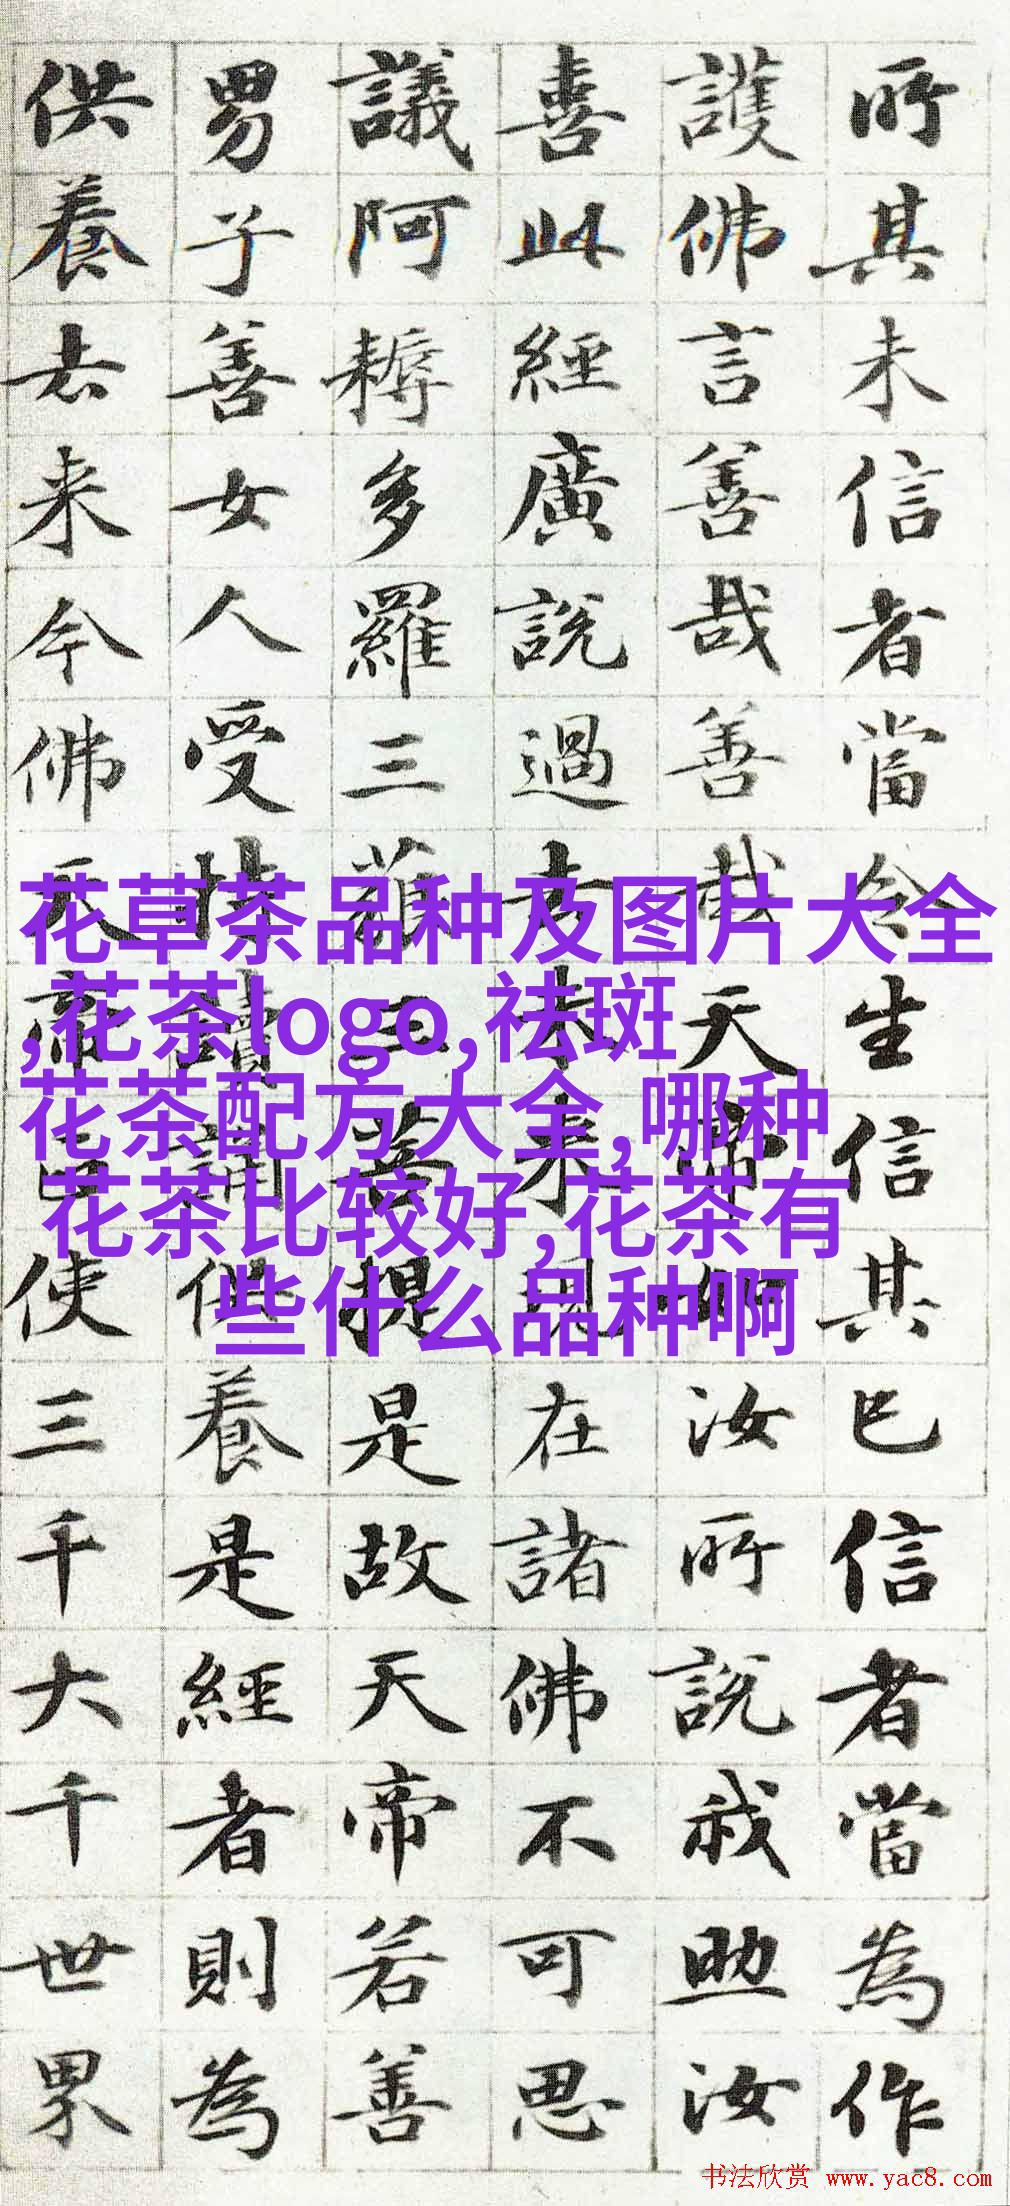 所其未信者當令生信其已信者當為作
護佛言善哉善哉天帝如汝所說我助汝
喜此經廣說過去未來現在諸佛不可思
議阿耨多羅三藐三菩提是故天帝若善
男子善女人受持讀誦供養是經者則為
供養去来今佛天帝使三千大千世界
花草茶品种及图片大全
,花茶logo,祛斑
花茶配方大全,哪种
花茶比较好,花茶有
些什么品种啊
书法欣赏 www.yac8.com